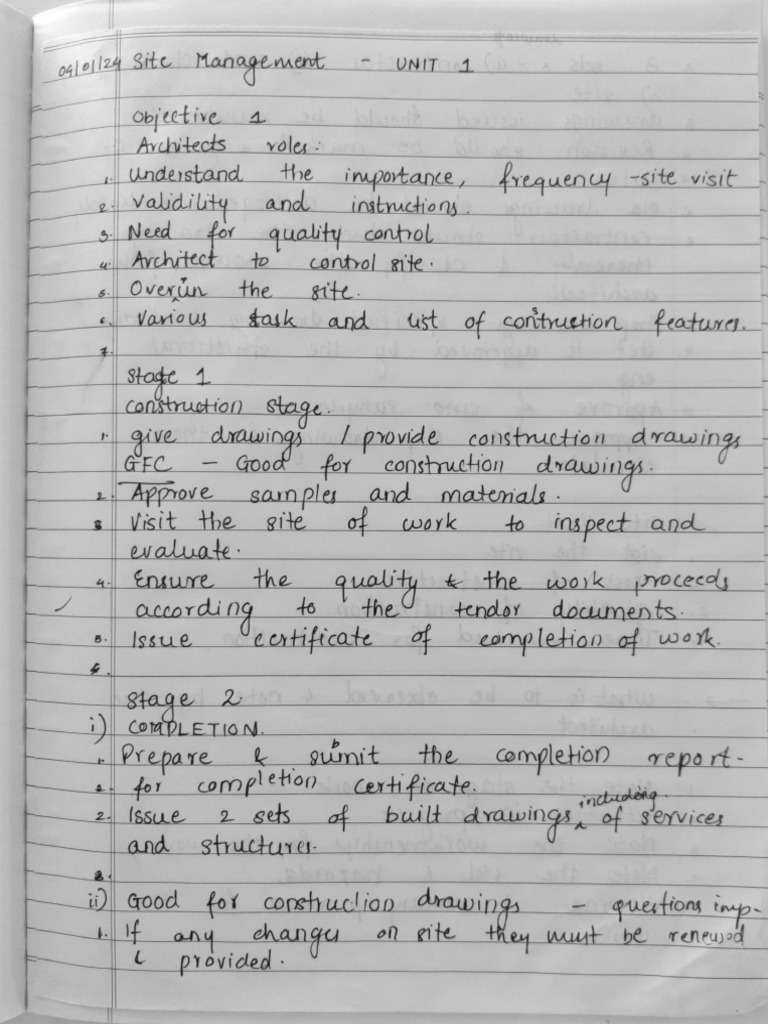 04/01/24 Site Management - UNIT 1
Objective 1
Architects roles:
1. Understand the importance, frequency - site visit
2. Validility and instructions.
3. Need for quality control
4. Architect to control site.
5. Overun the site.
6. Various task and list of construction features.
7.
Stage 1
construction stage.
1. give drawings / provide construction drawings
GFC - Good for construction drawings.
2. Approve samples and materials.
3 Visit the site of work to inspect and
evaluate.
4. Ensure the quality & the work proceeds
according to the tendor documents.
5. Issue certificate of completion of work.
6.
Stage 2
i) COMPLETION.
1. Prepare & submit the completion report -
2. for completion certificate.
2. Issue 2 sets of built drawings including of services
and structures.
3.
ii) Good for construction drawings - questions imp.
1. If any changes on site they must be renewed
& provided.